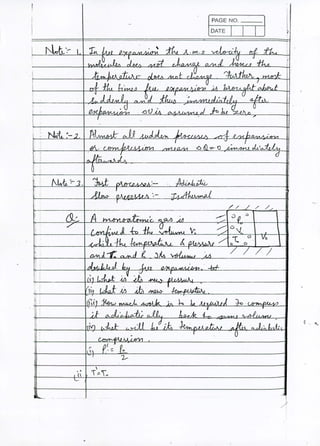 PAGE NO.
DATE
Note:- 1. In free expansion the r.m.s velocity of the
molecules does not change and hence the
temperature does not change. Further, most
of the times free expansion is brought about
suddenly and thus immediately after
expansion ΔU is assumed to be zero,
Note:-2. Almost all sudden processes of expansion
or compression mean ΔQ=0 immediately
afterwards.
Note:-3. Fast processes:- Adiabatic
Slow processes:- Isothermal
Q:- A monoatomic gas is
confined to the volume V.
while the temperature & pressure
and T. and P. Its volume is
doubled by free expansion.
(i) What is its new pressure.
(ii) What is its new temperature.
(iii) How much work is to be required to compress
it adiabatically back to same volume.
iv) what will be its temperature after adiabatic
compression.
(i) P' = P./2
(ii. T'=T.
P.
V.
T.
V.